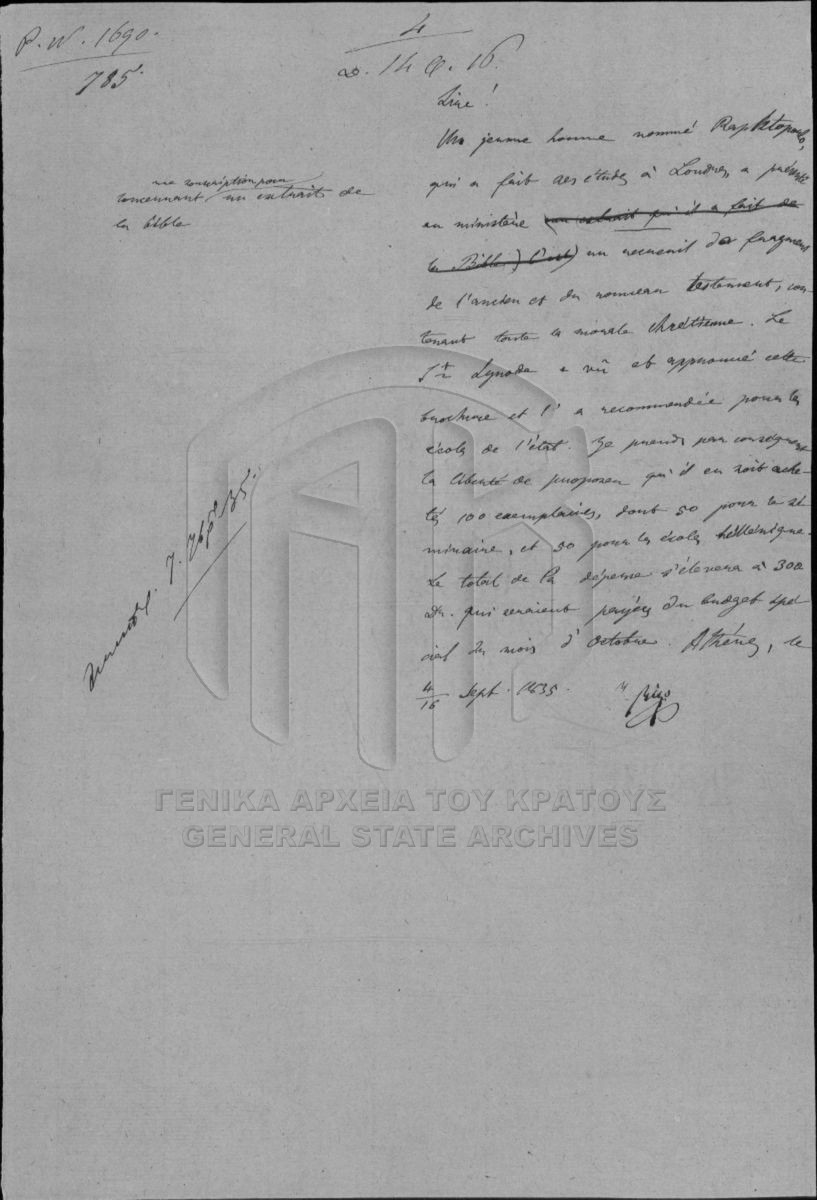 P. N. 1690.
785.
4
D. 14 16.
Sire!
Un jeune homme nommé Raphtopoulo,
qui a fait des études à Londres, a présenté
au ministère un extrait qu'il a fait de
la Bible un recueil de fragmens
de l'ancien et du nouveau testament, con-
tenant toute la morale chrétienne. Le
St Synode a vû et approuvé cette
brochure et l'a recommandée pour les
écoles de l'état. Je prends par conséquent
la liberté de proposer qu'il en soit ache-
tés 100 exemplaires, dont 50 pour le sé-
minaire, et 50 pour les écoles helléniques.
Le total de la dépense s'élevera à 300
Dr. qui seraient payés du budget spé-
cial du mois d'Octobre. Athènes, le
4/16 Sept. 1835. Rizo
une souscription pour
concernant un extrait de
la bible
7. 7bre 35.
ΓΕΝΙΚΑ ΑΡΧΕΙΑ ΤΟΥ ΚΡΑΤΟΥΣ
GENERAL STATE ARCHIVES